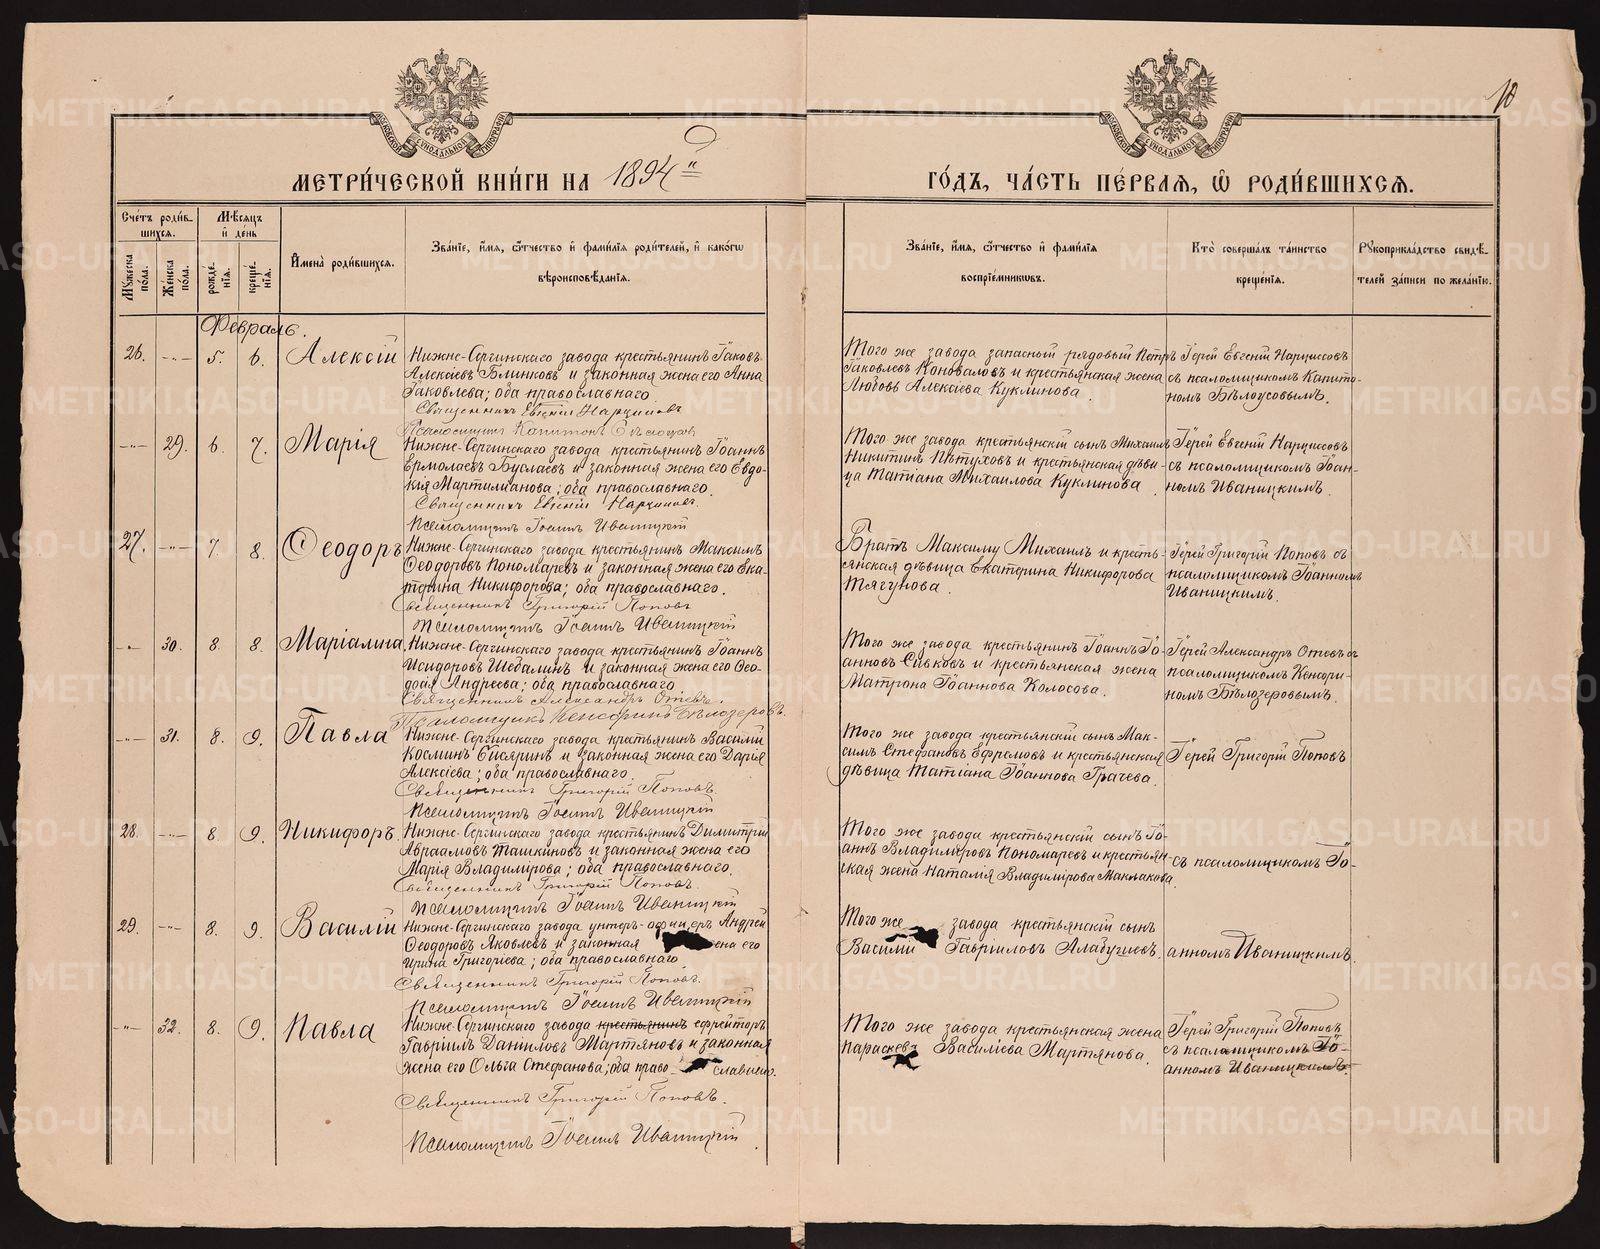 10
МОСКОВСКОЙ СУНОДАЛЬНОЙ ТИПОГРАФІИ
МОСКОВСКОЙ СУНОДАЛЬНОЙ ТИПОГРАФІИ
МЕТРИ́ЧЕСКОЙ КНИ́ГИ НА 1894
ГО́ДЪ, ЧА́СТЬ ПЕ́РВАЯ, Ѿ РОДИ́ВШИХСЯ.
Сче́тъ роди́в-
шихся.
Мꙋжеска по́ла.
Же́нска по́ла.
Мѣ́сяцъ
и҆ де́нь
рожде-
нїя.
креще-
нїя.
И҆мена̀ роди́вшихся.
Зва́нїе, и҆́мя, ѻ҆́тчество и҆ фами́лїя роди́телей, и҆ како́гѡ
вѣроисповѣ́данїя.
Зва́нїе, и҆́мя, ѻ҆́тчество и҆ фами́лїя
воспрїе́мникѡвъ.
Кто̀ соверша́лъ та́инство
креще́нїя.
Рꙋкоприкла́дство свидѣ́-
телей за́писи по жела́нїю.
Февраль.
26. -"- 5. 6. Алексій
Нижне-Сергинскаго завода крестьянинъ Іаковъ
Алексіевъ Блинковъ и законная жена его Анна
Іаковлева; оба православнаго.
Священникъ Евгеній Нарциссовъ
Псаломщикъ Капитонъ Бѣлоусовъ
Того же завода запасный рядовый Петръ
Іаковлевъ Коновалловъ и крестьянская жена
Любовь Алексіева Куклинова.
Іерей Евгеній Нарциссовъ
съ псаломщикомъ Капито-
номъ Бѣлоусовымъ.
-"- 29. 6. 7. Марія
Нижне-Сергинскаго завода крестьянинъ Іоаннъ
Ермолаевъ Буслаевъ и законная жена его Евдо-
кія Мартиліанова; оба православнаго.
Священникъ Евгеній Нарциссовъ.
Псаломщикъ Іоаннъ Иваницкій
Того же завода крестьянскій сынъ Михаилъ
Никитинъ Пѣтуховъ и крестьянская дѣви-
ца Татіана Михаилова Куклинова.
Іерей Евгеній Нарциссовъ
съ псаломщикомъ Іоан-
номъ Иваницкимъ.
27. -"- 7. 8. Ѳеодоръ
Нижне-Сергинскаго завода крестьянинъ Максимъ
Ѳеодоровъ Пономаревъ и законная жена его Ека-
терина Никифорова; оба православнаго.
Священникъ Григорій Поповъ
Псаломщикъ Іоаннъ Иваницкій
Братъ Максиму Михаилъ и кресть-
янская дѣвица Екатерина Никифорова
Тягунова.
Іерей Григорій Поповъ съ
псаломщикомъ Іоанномъ
Иваницкимъ.
-"- 30. 8. 8. Маріамна
Нижне-Сергинскаго завода крестьянинъ Іоаннъ
Исидоровъ Шебалинъ и законная жена его Ѳео-
досія Андреева; оба православнаго.
Священникъ Александръ Отевъ.
Псаломщикъ Кенсоринъ Бѣлозеровъ.
Того же завода крестьянинъ Іоаннъ Іо-
анновъ Сивковъ и крестьянская жена
Матрона Іоаннова Колосова.
Іерей Александръ Отевъ съ
псаломщикомъ Кенсори-
номъ Бѣлозеровымъ.
-"- 31. 8. 9. Павла
Нижне-Сергинскаго завода крестьянинъ Василій
Косминъ и законная жена его Дарія
Алексіева; оба православнаго.
Священникъ Григорій Поповъ.
Псаломщикъ Іоаннъ Иваницкій
Того же завода крестьянскій сынъ Мак-
симъ Стефановъ Ефремовъ и крестьянская
дѣвица Татіана Іоаннова Грачева.
Іерей Григорій Поповъ
28. -"- 8. 9. Никифоръ.
Нижне-Сергинскаго завода крестьянинъ Димитрій
Авраамовъ Ташкиновъ и законная жена его
Марія Владимірова; оба православнаго.
Священникъ Григорій Поповъ.
Псаломщикъ Іоаннъ Иваницкій
Того же завода крестьянскій сынъ Іо-
аннъ Владиміровъ Пономаревъ и крестьян-
ская жена Наталія Владимірова Маклакова.
съ псаломщикомъ Іо-
29. -"- 8. 9. Василій
Нижне-Сергинскаго завода унтеръ-офицеръ Андрей
Ѳеодоровъ Яковлевъ и законная жена его
Ирина Григоріева; оба православнаго
Священникъ Григорій Поповъ.
Псаломщикъ Іоаннъ Иваницкій
Того же завода крестьянскій сынъ
Василій Гавриловъ Алабугинъ.
анномъ Иваницкимъ.
-"- 32. 8. 9. Павла
Нижне-Сергинскаго завода крестьянинъ ефрейторъ
Гавріилъ Даниловъ Мартяновъ и законная
жена его Ольга Стефанова; оба право-славнаго.
Священникъ Григорій Поповъ.
Псаломщикъ Іоаннъ Иваницкій.
Того же завода крестьянская жена
Параскева Василіева Мартянова.
Іерей Григорій Поповъ
съ псаломщикомъ Іо-
анномъ Иваницкимъ.
METRIKI.GASO-URAL.RU